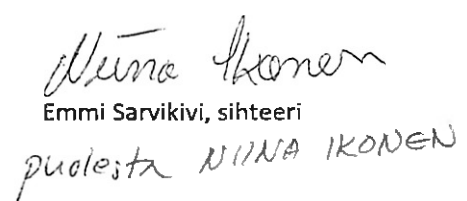 Niina Ikonen
Emmi Sarvikivi, sihteeri
puolesta NIINA IKONEN